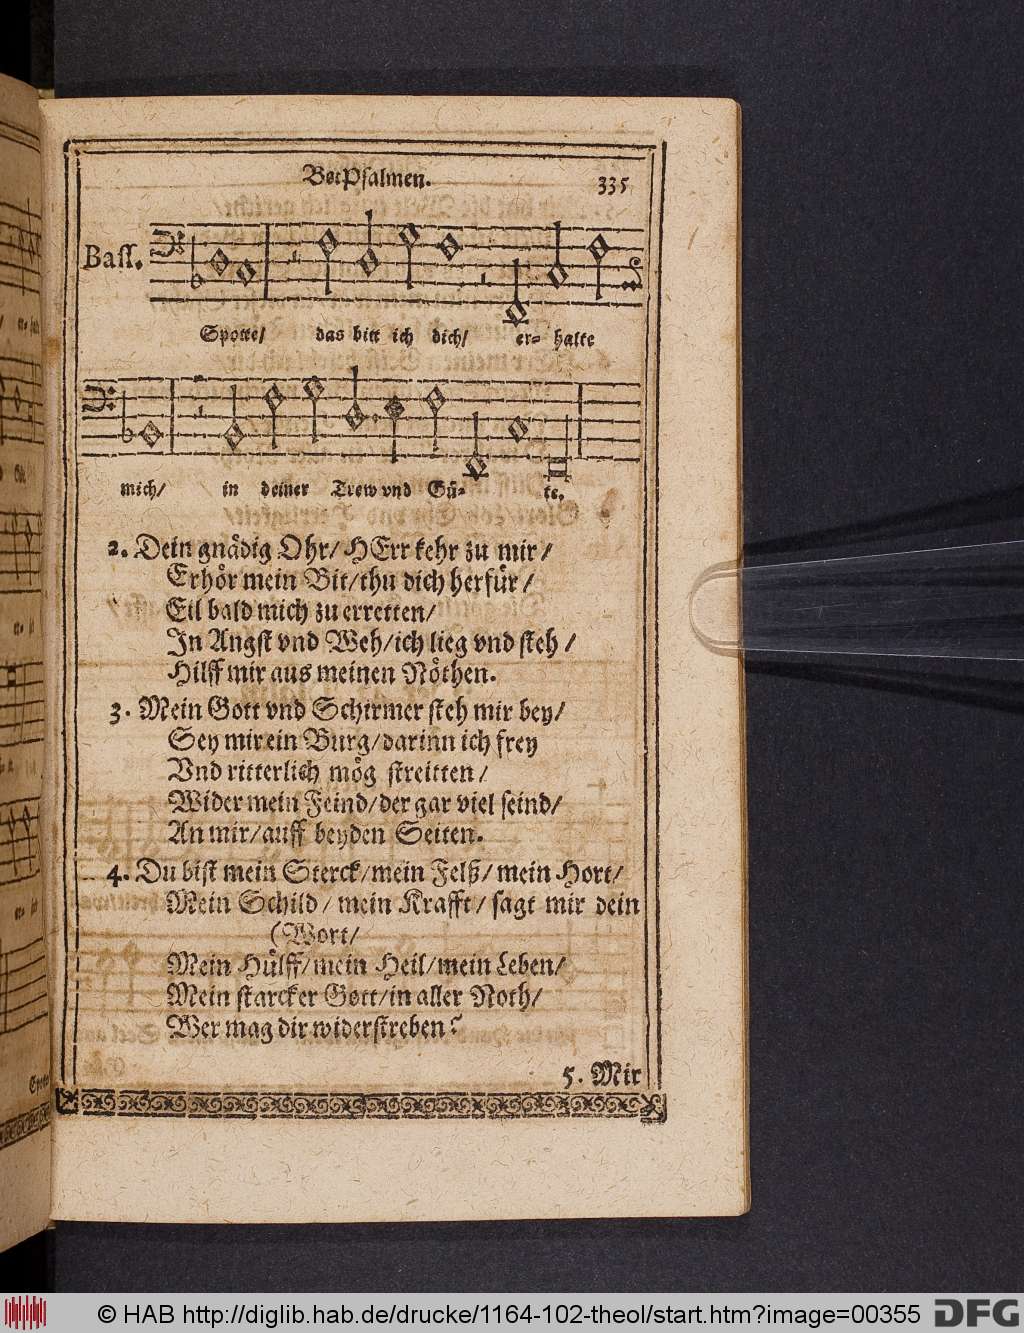 BetPsalmen.
335
Bass.
Spotte/ das bitt ich dich/ er= halte
mich/ in deiner Trew vnd Gü= te.
2. Dein gnådig Ohr/ HErr kehr zu mir/
Erhôr mein Bit/thu dich herfůr/
Eil bald mich zu erretten/
In Angst vnd Weh/ich lieg vnd steh/
Hilff mir aus meinen Nôthen.
3. Mein Gott vnd Schirmer steh mir bey/
Sey mir ein Burg/darinn ich frey
Vnd ritterlich môg streitten/
Wider mein Feind/der gar viel seind/
An mir/auff beyden Seiten.
4. Du bist mein Sterck/mein Felß/mein Hort/
Mein Schild/mein Krafft/sagt mir dein
(Wort/
Mein Hůlff/mein Heil/mein Leben/
Mein starcker Gott/in aller Noth/
Wer mag dir widerstreben?
5. Mir
© HAB http://diglib.hab.de/drucke/1164-102-theol/start.htm?image=00355
DFG